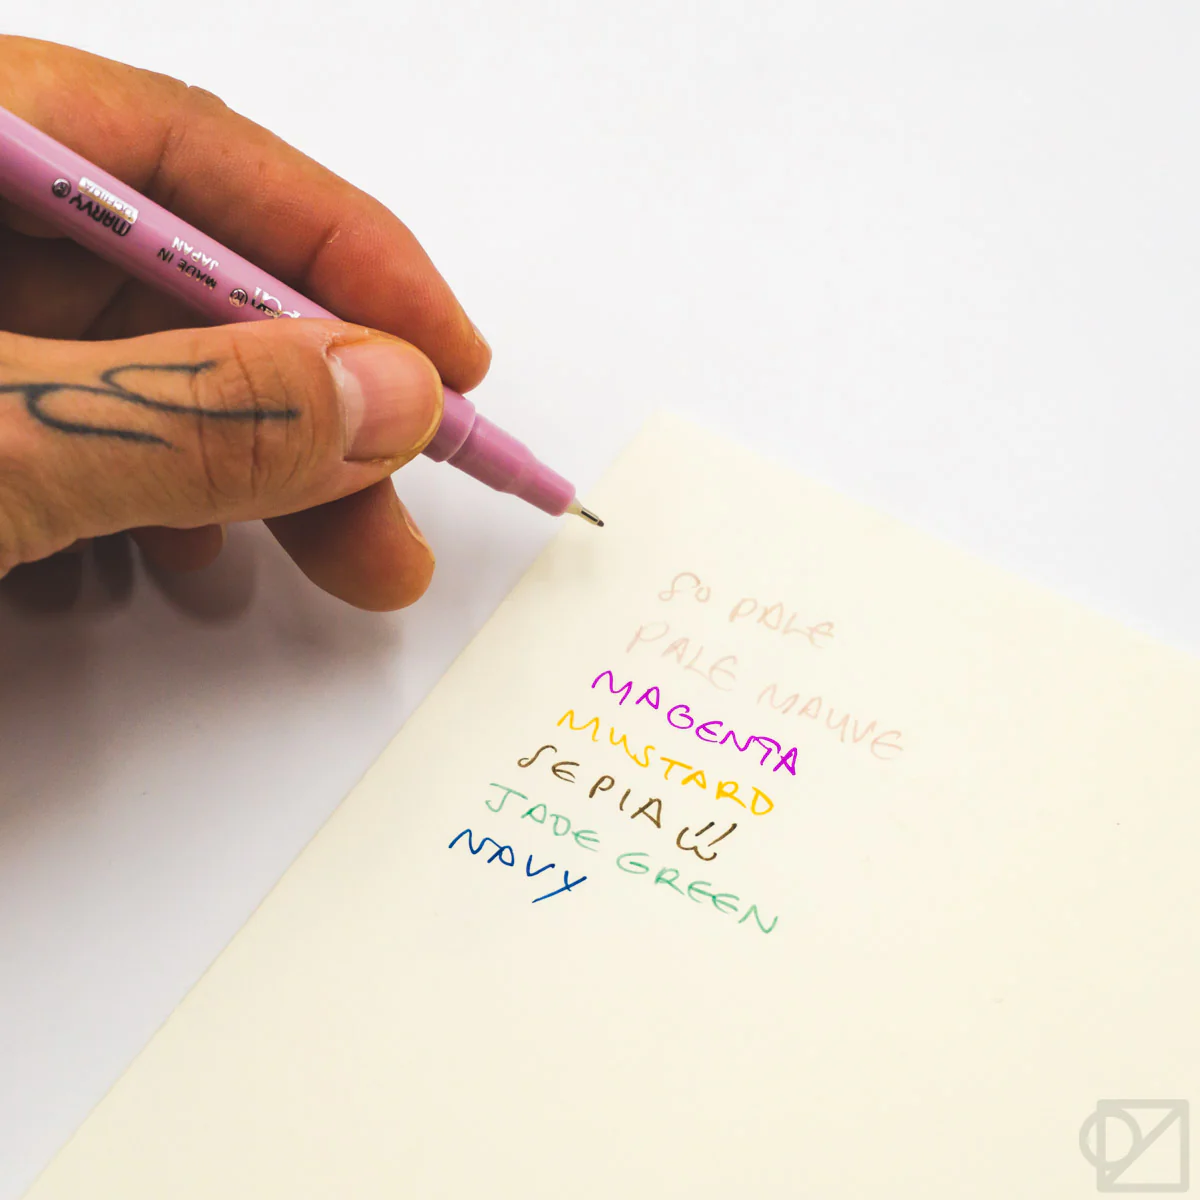 MARVY
UCHIDA
MADE IN
JAPAN
SO PALE
PALE MAUVE
MAGENTA
MUSTARD
SEPIA
JADE GREEN
NAVY